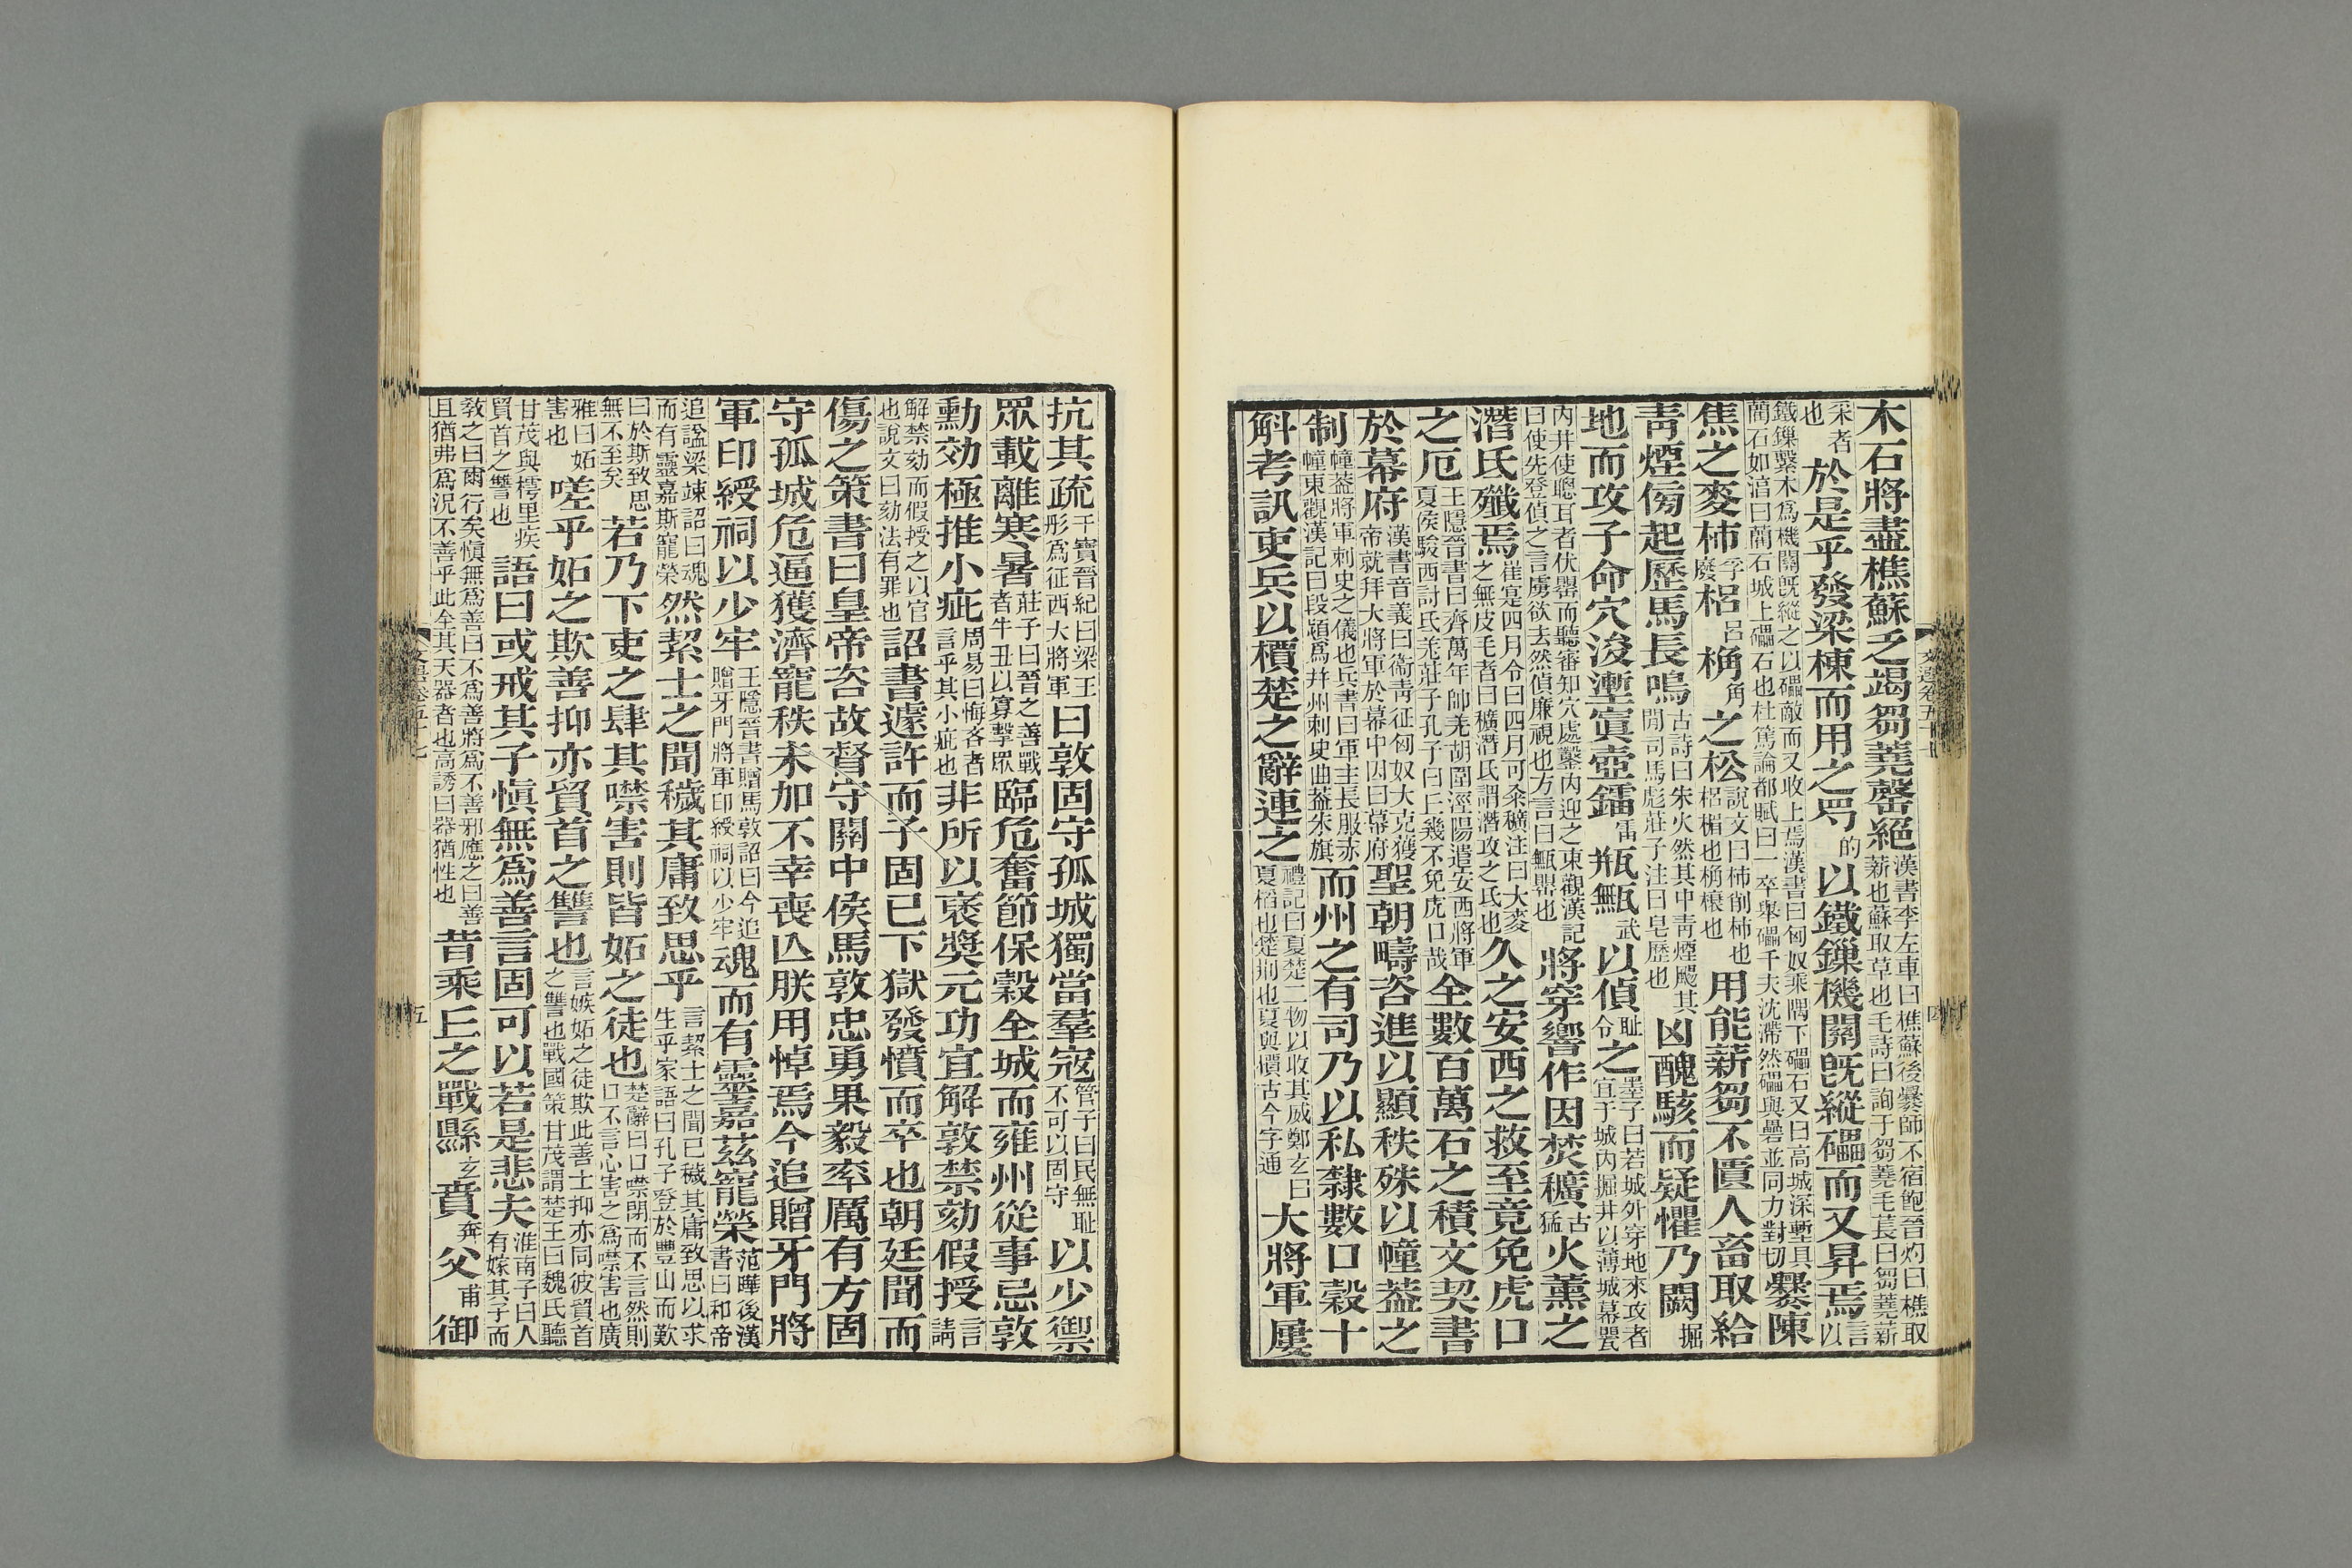 木石將盡樵蘇乏竭芻蕘罄絕漢書李左車曰樵蘇後爨師不宿飽晉灼曰樵取薪也蘇取草也毛詩曰詢于芻蕘毛萇曰芻蕘薪
采者也於是乎發梁棟而用之罥的以鐵鏁機關旣縱礧而又昇焉言以
鐵鏁繫木爲機關旣縱之以礧敵而又收上焉漢書曰匈奴乘隅下礧石又曰高城深塹具藺石如湻曰藺石城上礧石也杜篤論都賦曰一卒舉礧千夫沈滯然礧與礨並同力對切爨陳
焦之麥柿孚廢梠呂桷角之松說文曰柿削柿也梠楣也桷榱也用能薪芻不匱人畜取給
靑煙傍起歷馬長鳴古詩曰朱火然其中靑煙颺其閒司馬彪莊子注曰皂歷也凶醜駭而疑懼乃闕掘
地而攻子命穴浚壍寘壺鐳雷瓶甒武以偵恥令之墨子曰若城外穿地來攻者宜于城內掘井以薄城幕罌
內井使聰耳者伏罌而聽審知穴處鑿內迎之東觀漢記曰使先登偵之言虜欲去然偵廉視也方言曰甒罌也將穿響作因焚穬古猛火薰之
潛氏殲焉崔寔四月令曰四月可糴穬注曰大麥之無皮毛者曰穬潛氏謂潛攻之氏也久之安西之救至竟免虎口
之厄王隱晉書曰齊萬年帥羌胡圍涇陽遣安西將軍夏侯駿西討氐羌莊子孔子曰丘幾不免虎口哉全數百萬石之積文契書
於幕府漢書音義曰衞靑征匈奴大克獲帝就拜大將軍於幕中因曰幕府聖朝疇咨進以顯秩殊以幢葢之
制幢葢將軍刺史之儀也兵書曰軍主長服赤幢東觀漢記曰段熲爲并州刺史曲葢朱旗而州之有司乃以私隸數口穀十
斛考訊吏兵以檟楚之辭連之禮記曰夏楚二物以收其威鄭玄曰夏榎也楚荆也夏與檟古今字通大將軍屢
抗其疏干寶晉紀曰梁王肜爲征西大將軍曰敦固守孤城獨當羣寇管子曰民無恥不可以固守以少禦
眾載離寒暑莊子曰晉之善戰者牛丑以寡擊眾臨危奮節保穀全城而雍州從事忌敦
勳效極推小疵周易曰悔吝者言乎其小疵也非所以褒獎元功宜解敦禁劾假授言請
解禁劾而假授之以官也說文曰劾法有罪也詔書遽許而子固已下獄發憤而卒也朝廷聞而
傷之策書曰皇帝咨故督守關中侯馬敦忠勇果毅率厲有方固
守孤城危逼獲濟寵秩未加不幸喪亾朕用悼焉今追贈牙門將
軍印綬祠以少牢王隱晉書贈馬敦詔曰今追贈牙門將軍印綬祠以少牢魂而有靈嘉茲寵榮范曄後漢書曰和帝
追謚梁竦詔曰魂而有靈嘉斯寵榮然絜士之聞穢其庸致思乎言絜士之聞已穢其庸致思以求生乎家語曰孔子登於豐山而歎
曰於斯致思無不至矣若乃下吏之肆其噤害則皆妬之徒也楚辭曰口噤閉而不言然則口不言心害之爲噤害也廣
雅曰妬害也嗟乎妬之欺善抑亦貿首之讐也言嫉妬之徒欺此善士抑亦同彼貿首之讐也戰國策甘茂謂楚王曰魏氏聽
甘茂與樗里疾貿首之讐也語曰或戒其子愼無爲善言固可以若是悲夫淮南子曰人有嫁其子而
敎之曰爾行矣愼無爲善曰不爲善將爲不善邪應之曰善且猶弗爲況不善乎此全其天器者也高誘曰器猶性也昔乘丘之戰縣玄賁奔父甫御